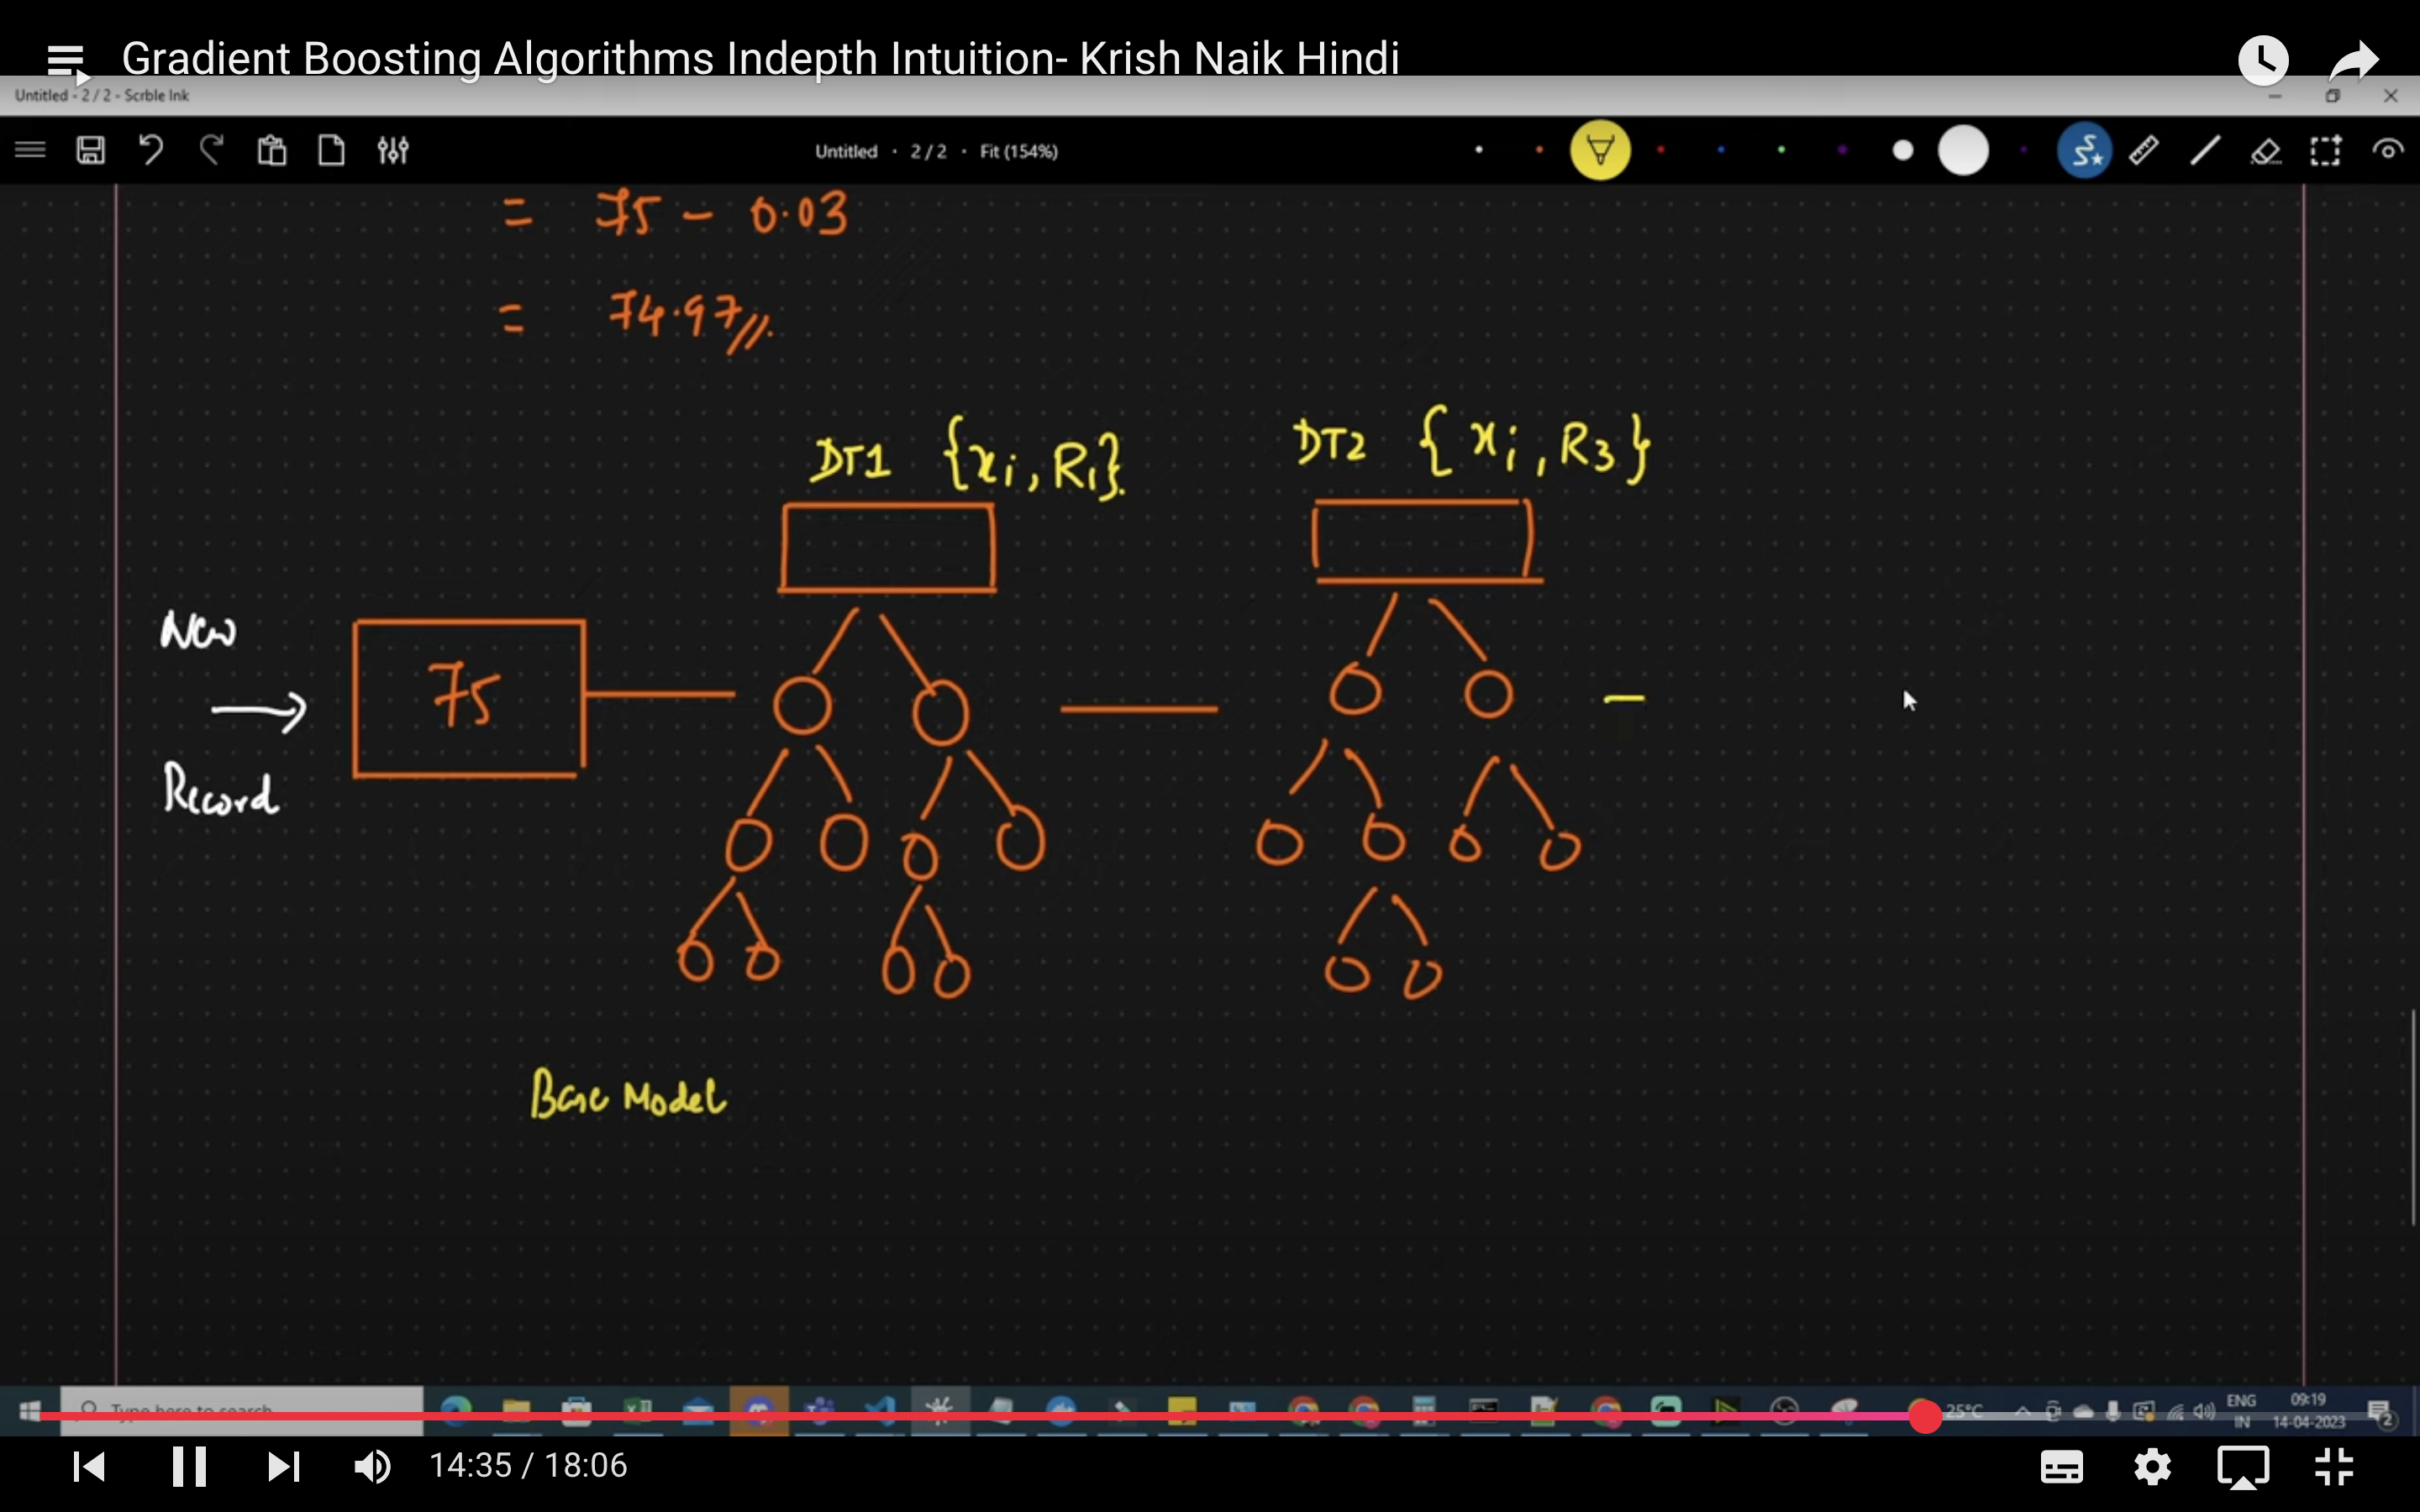 Gradient Boosting Algorithms Indepth Intuition- Krish Naik Hindi
Untitled - 2 / 2 - Scrble Ink
Untitled · 2 / 2 · Fit (154%)
= 75 - 0.03
= 74.97//
DT1 {xi, R1}
DT2 {xi, R3}
New
75
Record
Base Model
Type here to search
25°C
ENG
IN
09:19
14-04-2023
2
14:35 / 18:06